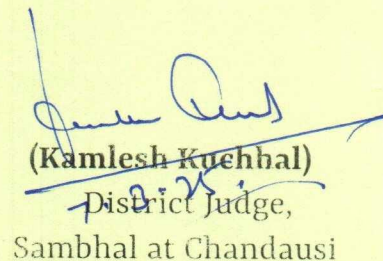 (Kamlesh Kuchhal)
7.3.25.
District Judge,
Sambhal at Chandausi